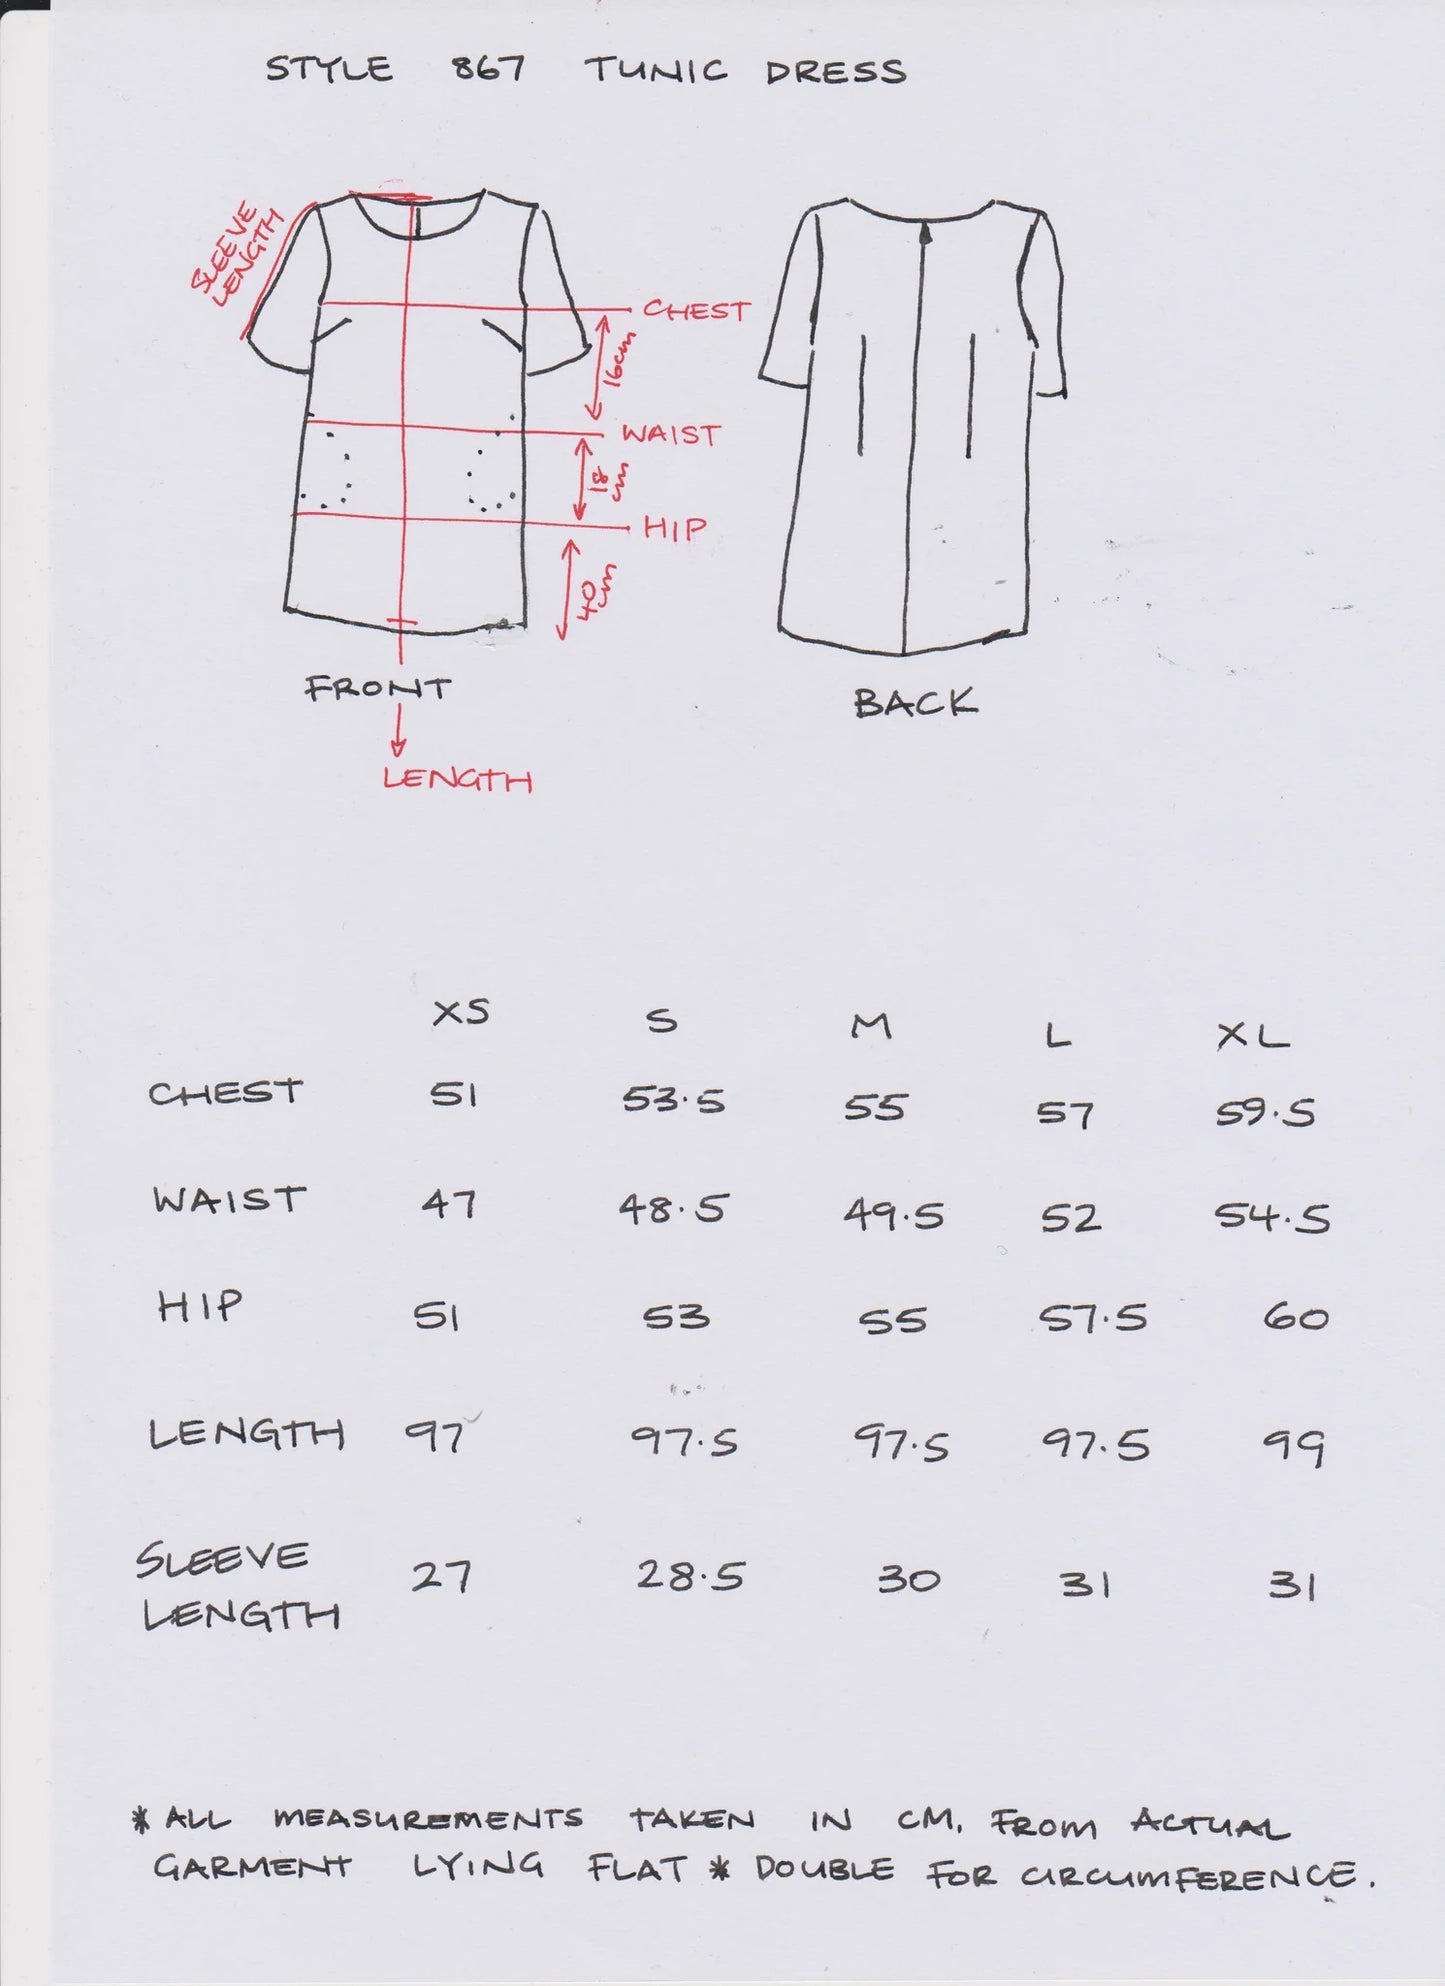 STYLE 867 TUNIC DRESS
SLEEVE
LENGTH
CHEST
16cm
WAIST
18
cm
HIP
40
cm
FRONT
BACK
LENGTH
XS S M L XL
CHEST 51 53.5 55 57 59.5
WAIST 47 48.5 49.5 52 54.5
HIP 51 53 55 57.5 60
LENGTH 97 97.5 97.5 97.5 99
SLEEVE
LENGTH 27 28.5 30 31 31
* ALL MEASUREMENTS TAKEN IN CM. FROM ACTUAL
GARMENT LYING FLAT * DOUBLE FOR CIRCUMFERENCE.